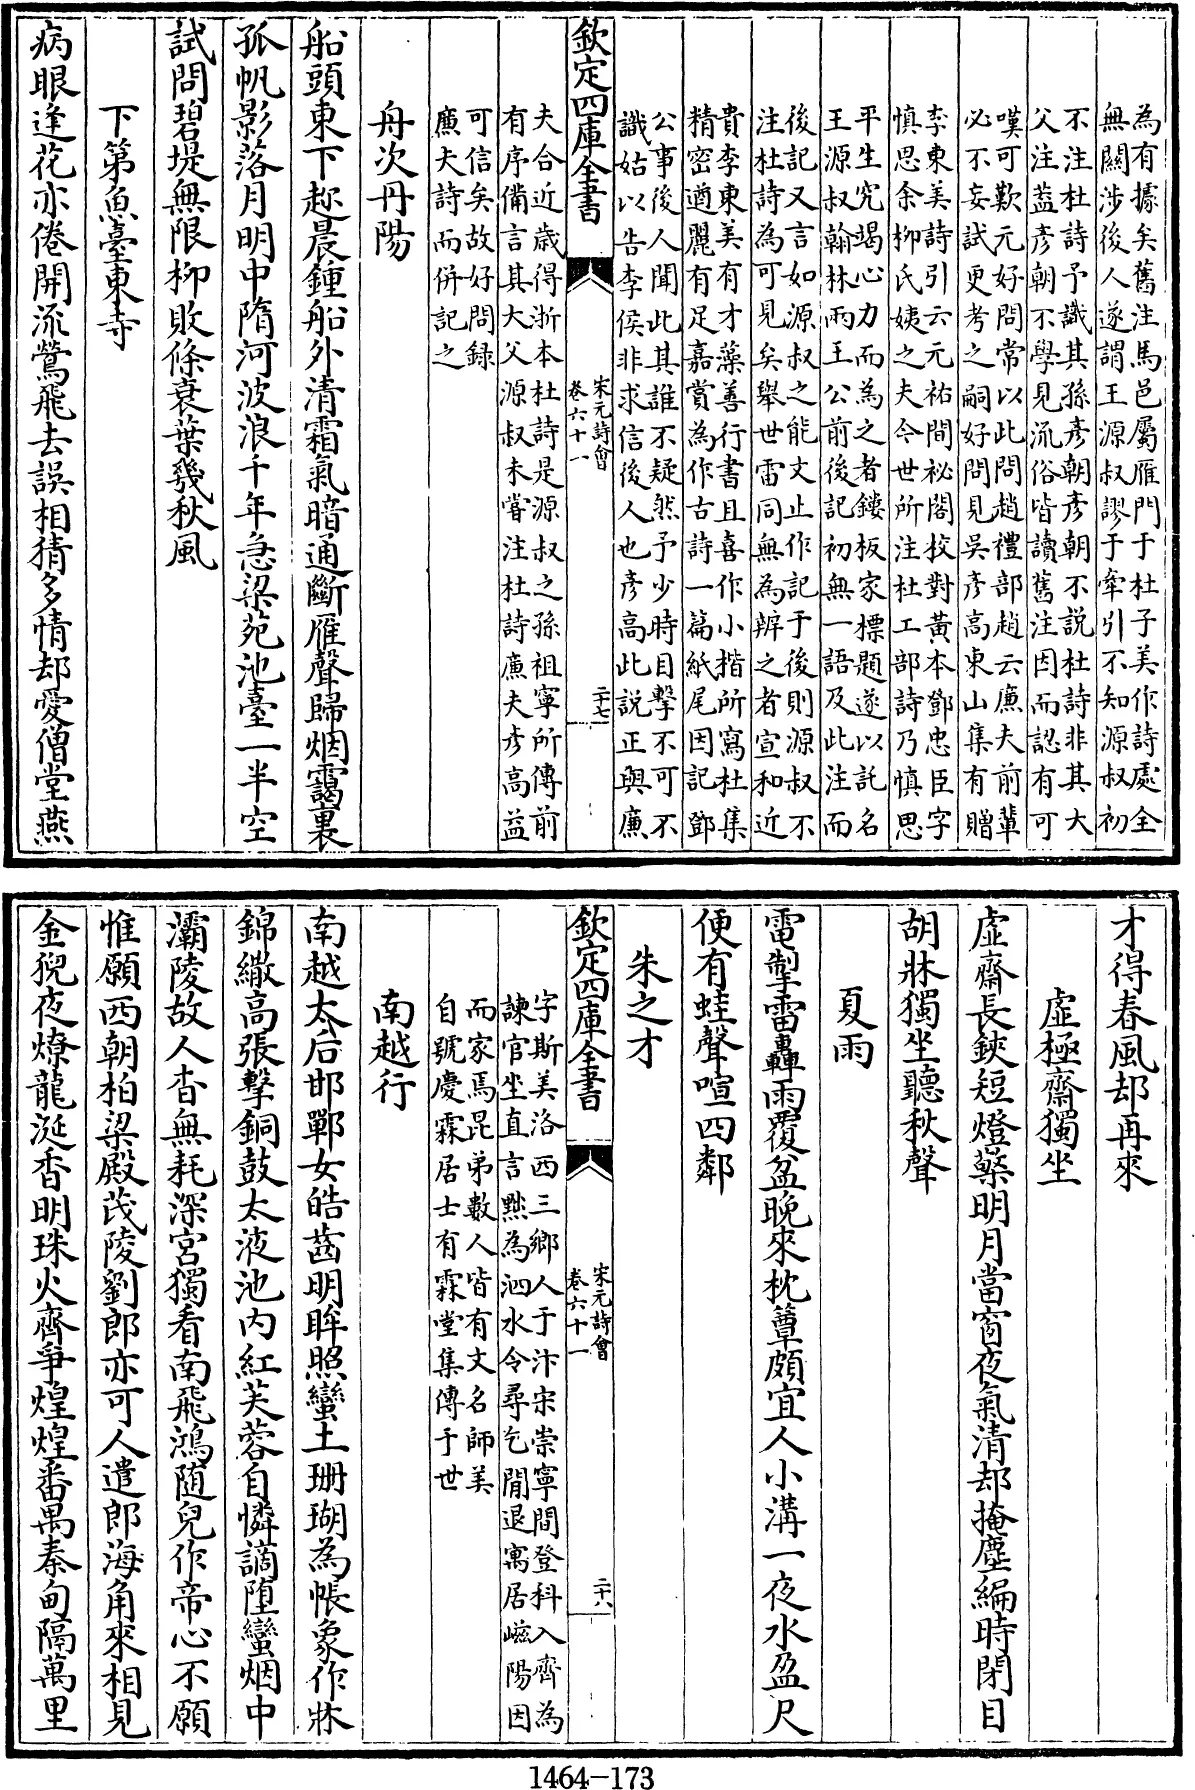 為有據矣舊注馬邑屬雁門于杜子美作詩處全
無關涉後人遂謂王源叔謬于牽引不知源叔初
不注杜詩予識其孫彥朝彥朝不說杜詩非其大
父注葢彥朝不學見流俗皆讀舊注因而認有可
嘆可歎元好問常以此問趙禮部趙云廉夫前輩
必不妄試更考之嗣好問見吳彥高東山集有贈
李東美詩引云元祐間祕閣校對黃本鄧忠臣字
慎思余栁氏姨之夫今世所注杜工部詩乃慎思
平生究竭心力而為之者鏤板家標題遂以託名
王源叔翰林兩王公前後記初無一語及此注而
後記又言如源叔之能文止作記于後則源叔不
注杜詩為可見矣舉世雷同無為辨之者宣和近
貴李東美有才藻善行書且喜作小楷所寫杜集
精密遒麗有足嘉賞為作古詩一篇紙尾因記鄧
公事後人聞此其誰不疑然予少時目擊不可不
識姑以告李侯非求信後人也彥高此説正與廉
欽定四庫全書
宋元詩會
卷六十一
二十七
夫合近歲得浙本杜詩是源叔之孫祖寧所傳前
有序備言其大父源叔未嘗注杜詩廉夫彥高益
可信矣故好問録
廉夫詩而併記之
舟次丹陽
船頭東下趂晨鍾船外清霜氣暗通斷雁聲歸烟靄裏
孤帆影落月明中隋河波浪千年急梁苑池臺一半空
試問碧堤無限栁敗條衰葉幾秋風
下第魚臺東寺
病眼逢花亦倦開流鶯飛去誤相猜多情却愛僧堂燕
才得春風却再來
虛極齋獨坐
虛齋長鋏短燈檠明月當窗夜氣清却掩塵編時閉目
胡牀獨坐聽秋聲
夏雨
電掣雷轟雨覆盆晚來枕簟頗宜人小溝一夜水盈尺
便有蛙聲喧四鄰
朱之才
欽定四庫全書
宋元詩會
卷六十一
二十八
字斯美洛西三鄉人于汴宋崇寧間登科入齊為
諫官坐直言黜為泗水令尋乞閒退寓居嵫陽因
而家焉昆弟數人皆有文名師美
自號慶霖居士有霖堂集傳于世
南越行
南越太后邯鄲女皓齒明眸照蠻土珊瑚為帳象作牀
錦繖高張擊銅鼓太液池内紅芙蓉自憐謫墮蠻烟中
灞陵故人杳無耗深宮獨看南飛鴻随兒作帝心不願
惟願西朝柏梁殿茂陵劉郎亦可人遣郎海角來相見
金猊夜燎龍涎香明珠火齊爭煌煌番禺秦甸隔萬里
1464-173